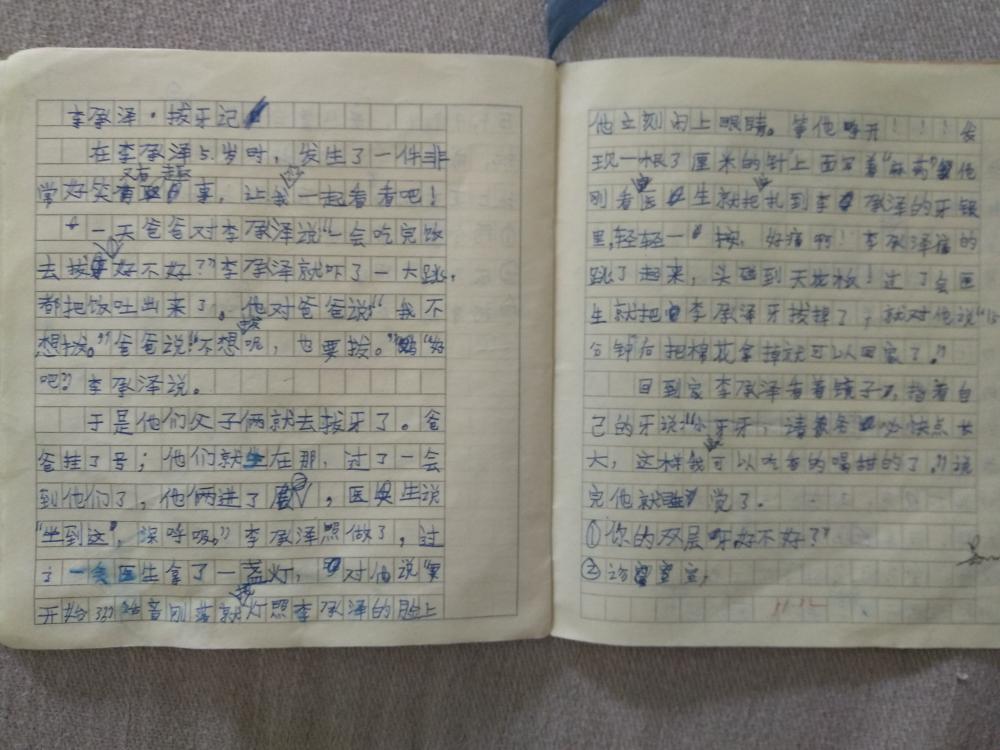 李承泽·拔牙记
在李承泽5岁时，发生了一件非
又有趣
常好笑事，让我一起看看吧！
一天爸爸对李承泽说“一会吃完饭
去拔①好不好？”李承泽就吓了一大跳，
都把饭吐出来了。他对爸爸说“我不
想拔。”爸爸说“不想呢，也要拔。”“好
吧”李承泽说。
于是他们父子俩就去拔牙了。爸
爸挂了号；他们就坐在那，过了一会
到他们了，他俩进了②，医生说
“坐到这”，深呼吸。”李承泽照做了，过
了一会医生拿了一盏灯，对他说“要
开始了”音刚落就把灯照李承泽的脸上
他立刻闭上眼睛。等他睁开！！！发
现一根了厘米的针上面写着“麻药”他
刚看医生就把扎到李承泽的牙银
里，轻轻一按，好痛啊！李承泽痛的
跳了起来，头碰到天花板！过了会医
生就把李承泽牙拔掉了，就对他说“15
分钟后把棉花拿掉就可以回家了。”
回到家李承泽看着镜子，指着自
己的牙说“小牙牙，请你快点长
大，这样我可以吃香的喝甜的了。”说
完他就睡觉了.
①你的双层牙好不好？”
②诊室，